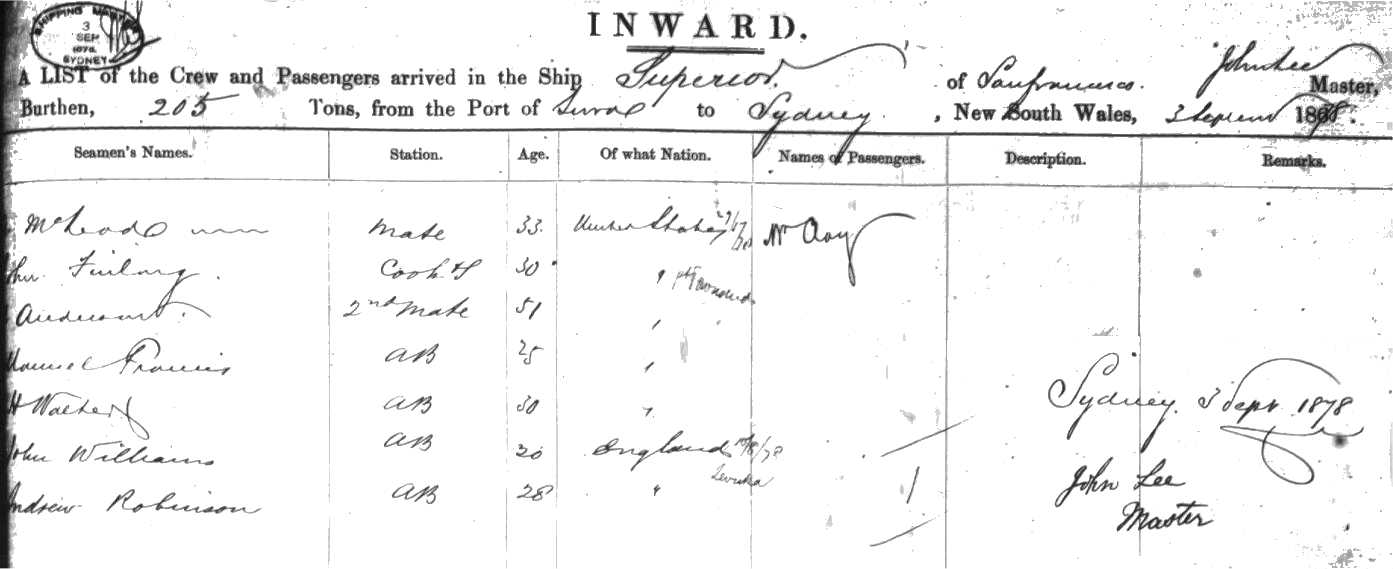 SHIPPING MASTER
3
SEP
1878
SYDNEY
INWARD.
A LIST of the Crew and Passengers arrived in the Ship Superior. of Sanfrancisco. John Lee Master,
Burthen, 205 Tons, from the Port of to Sydney. , New South Wales, 3 1878.
Seamen's Names. Station. Age. Of what Nation. Names of Passengers. Description. Remarks.
McLeod Mate 33. United States Mr
Cook & S 30 " pt Townsend
2nd Mate 51 "
Francis AB 25 "
H AB 30 "
John Williams AB 20 England /8/78
Levuka
Andrew Robinson AB 28 " 1
Sydney. 3 Sept 1878
John Lee
Master